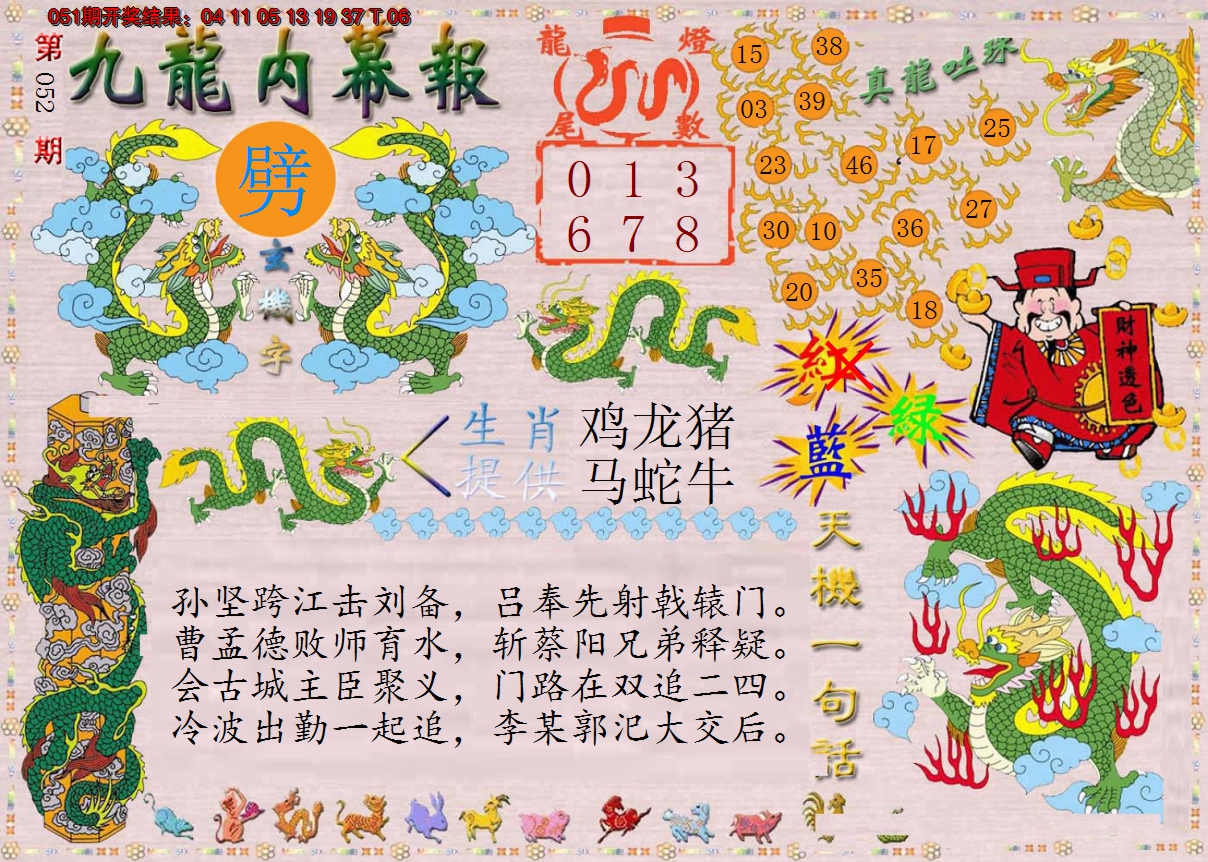 051期开奖结果：04 11 05 13 19 37 T 06
第052期
九龍内幕報
劈
玄機字
龍燈
尾數
0 1 3
6 7 8
真龍吐珠
15 38
03 39
17 25
23 46
30 10 36 27
20 35 18
財神透色
紅
绿
藍
生肖 鸡龙猪
提供 马蛇牛
孙坚跨江击刘备，吕奉先射戟辕门。
曹孟德败师育水，斩蔡阳兄弟释疑。
会古城主臣聚义，门路在双追二四。
冷波出勤一起追，李某郭汜大交后。
天機一句话